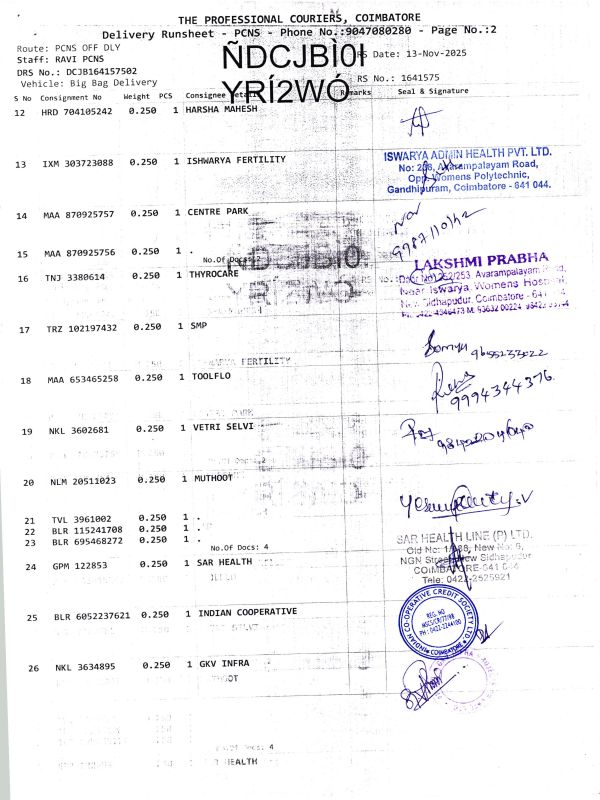 THE PROFESSIONAL COURIERS, COIMBATORE
Delivery Runsheet - PCNS - Phone No.:9047080280 - Page No.:2
Route: PCNS OFF DLY
Staff: RAVI PCNS
RS Date: 13-Nov-2025
DRS No.: DCJB164157502
Vehicle: Big Bag Delivery
RS No.: 1641575
ÑDCJBÌ0I
YRÍ2WÓ
S No Consignment No Weight PCS Consignee Details Remarks Seal & Signature
12 HRD 704105242 0.250 1 HARSHA MAHESH
13 IXM 303723088 0.250 1 ISHWARYA FERTILITY
ISWARYA ADMIN HEALTH PVT. LTD.
No: 238, Avarampalayam Road,
Opp. Womens Polytechnic,
Gandhipuram, Coimbatore - 641 044.
14 MAA 870925757 0.250 1 CENTRE PARK
15 MAA 870925756 0.250 1 .
No.Of Docs: 2
16 TNJ 3380614 0.250 1 THYROCARE
LAKSHMI PRABHA
Door No: 252/253, Avarampalayam Road,
Near Iswarya Womens Hospital
New Sidhapudur, Coimbatore - 641
17 TRZ 102197432 0.250 1 SMP
Sowmya 9655237022
18 MAA 653465258 0.250 1 TOOLFLO
9994344376
19 NKL 3602681 0.250 1 VETRI SELVI
20 NLM 20511023 0.250 1 MUTHOOT
21 TVL 3961002 0.250 1 .
22 BLR 115241708 0.250 1 .
23 BLR 695468272 0.250 1 .
No.Of Docs: 4
24 GPM 122853 0.250 1 SAR HEALTH
SAR HEALTH LINE (P) LTD.
Old No: 1/088, New No: 6,
NGN Street, New Sidhapudur
COIMBATORE-641 044
Tele: 0422-2525921
25 BLR 6052237621 0.250 1 INDIAN COOPERATIVE
INDIAN CO-OPERATIVE CREDIT SOCIETY LTD.
REG. NO
MSCS/CR/77/98
PH : 0422-2244100
COIMBATORE
26 NKL 3634895 0.250 1 GKV INFRA
No.Of Docs: 4
HEALTH